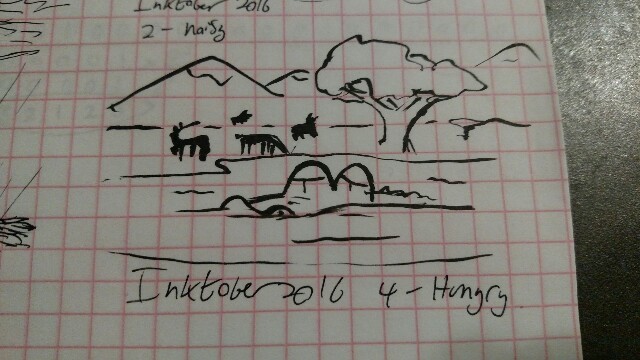 Inktober 2016
2 - Noisy
Inktober 2016 4 - Hungry